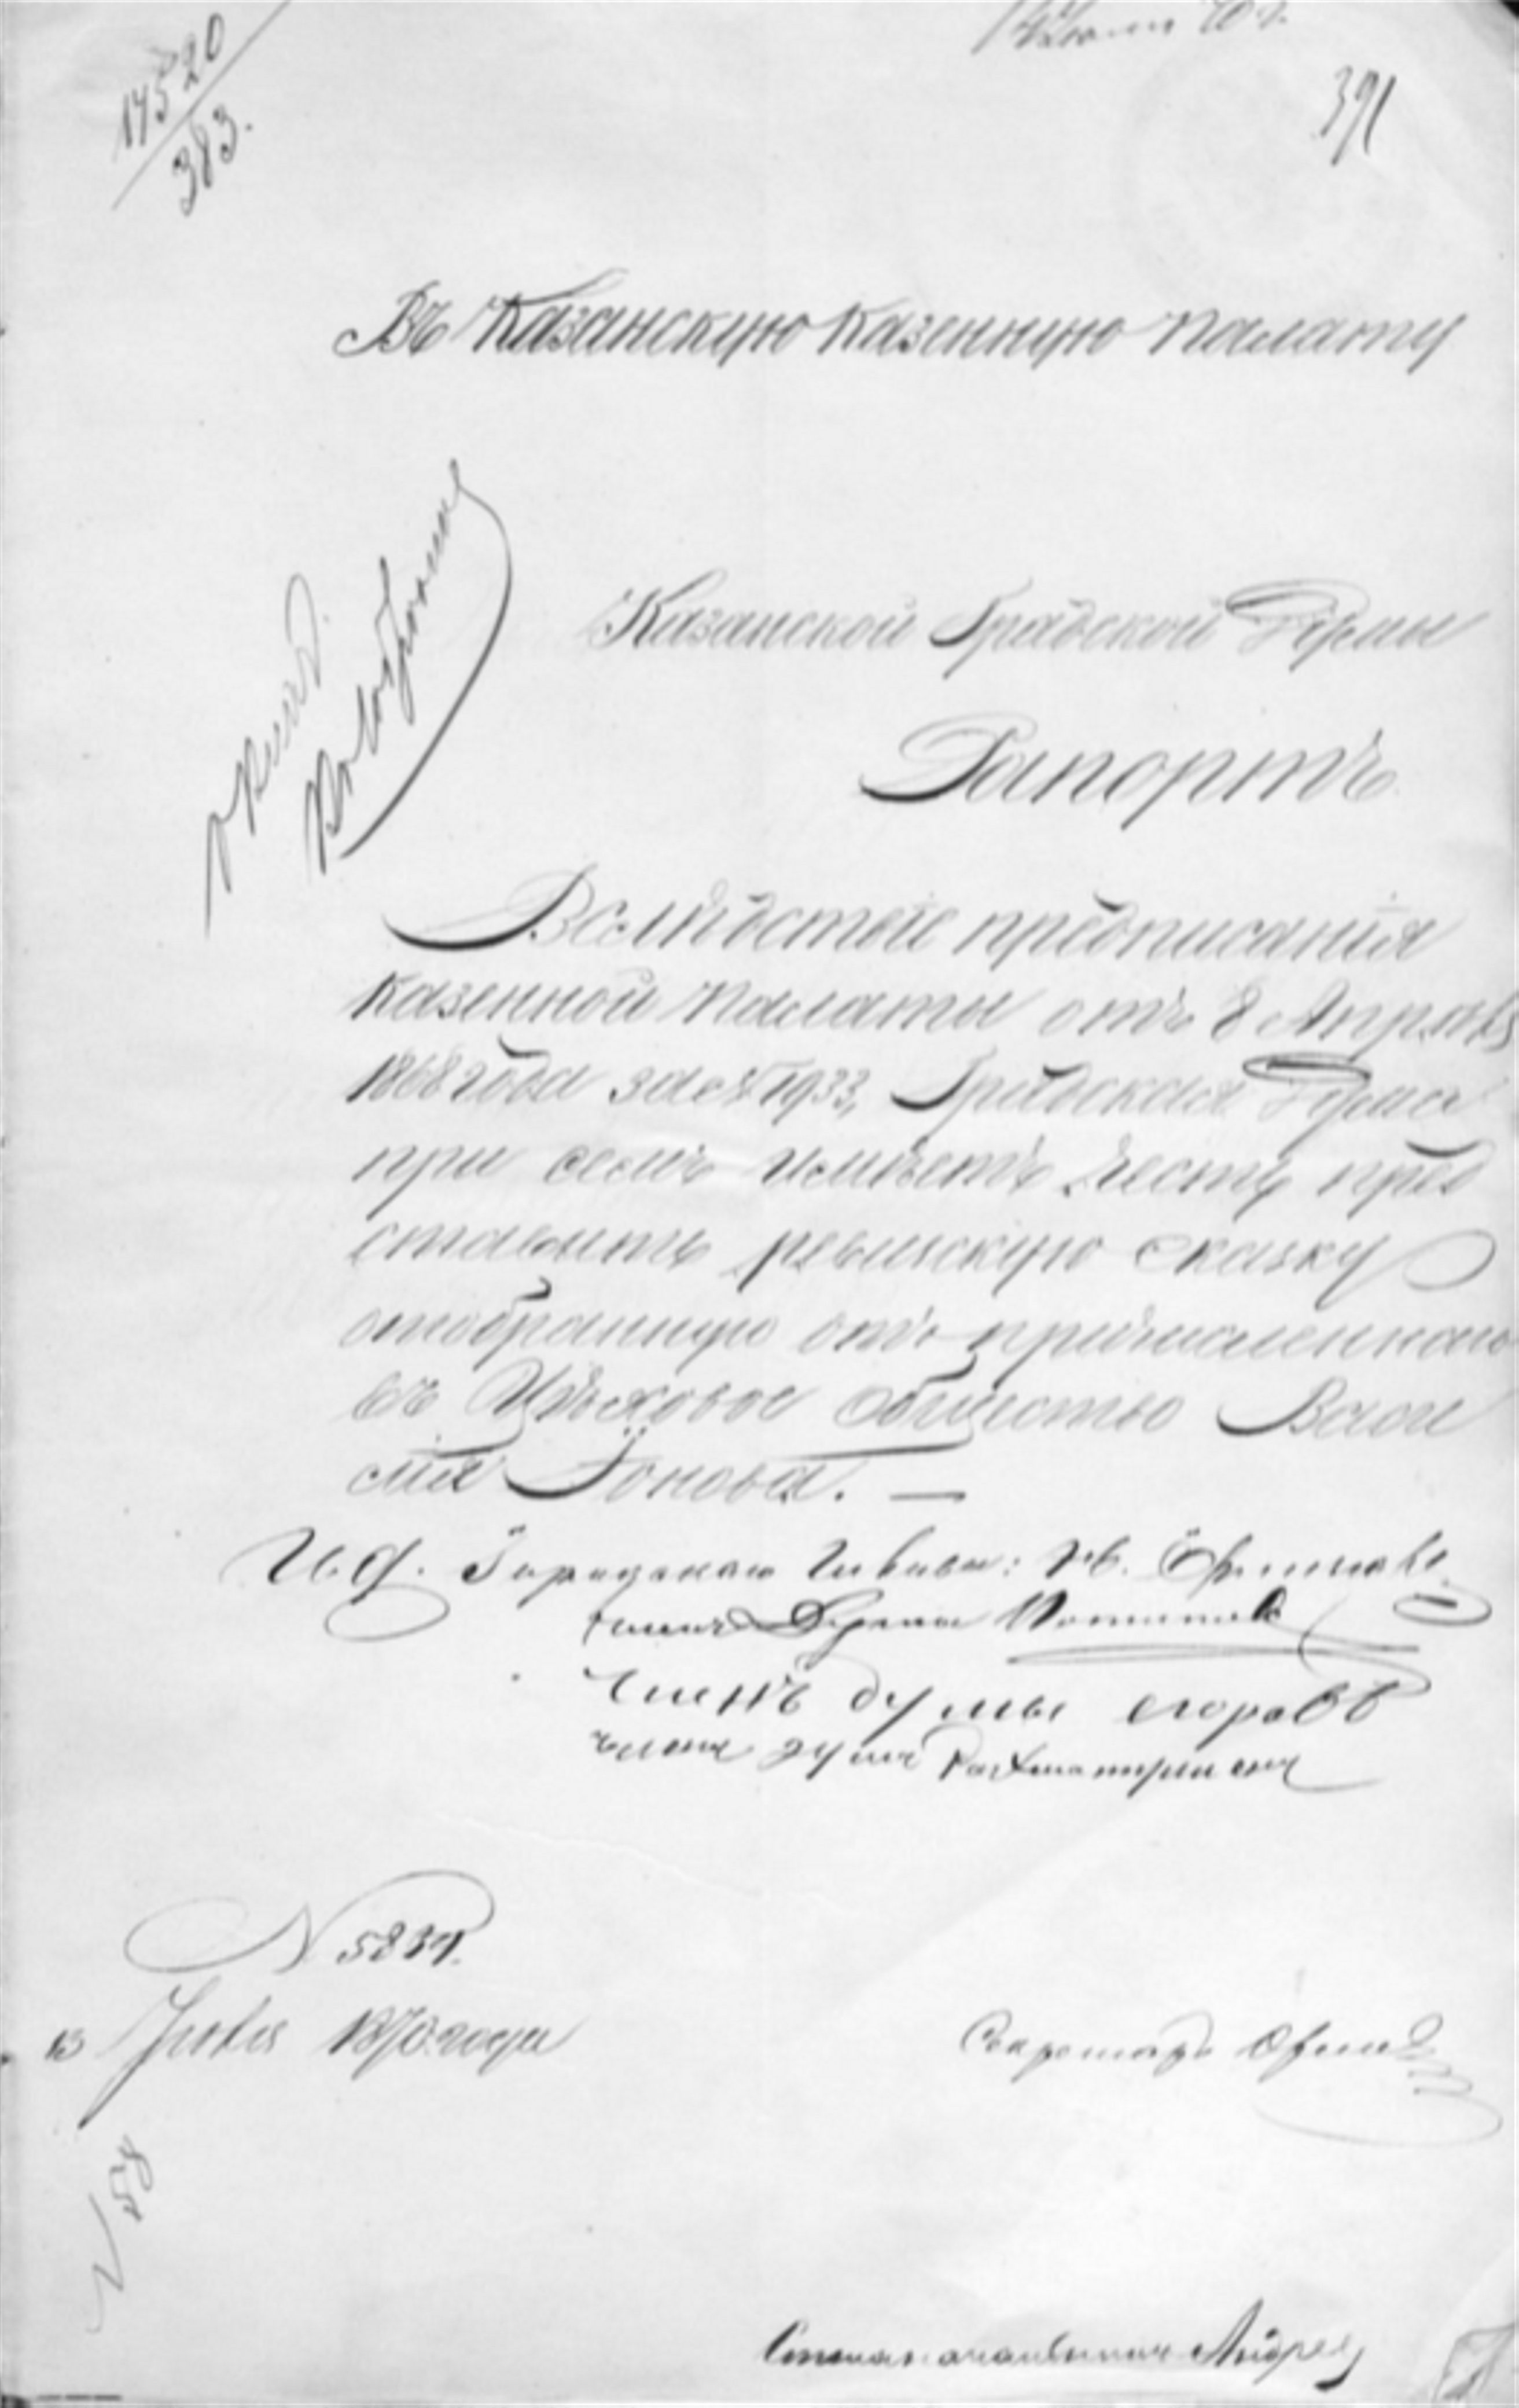 14520
383.
Іюля 70 г.
391
Въ Казанскую Казенную Палату
Казанской Градской Думы
Рапортъ
Вслѣдствіе предписанія
Казенной Палаты отъ 8 Апрѣля
1868 года за № 1933, Градская Дума
при семъ имѣетъ честь пред
ставить ревизскую сказку
отобранную отъ причисленнаго
въ Цѣховое общество Васи
лія Іонова. —
И. д. Городскаго Головы: Ив.
членъ Думы
членъ думы егоровъ
членъ думы
N 5837.
13 Іюля 1870 года
Секретарь
N 58
Столоначальникъ Андреев